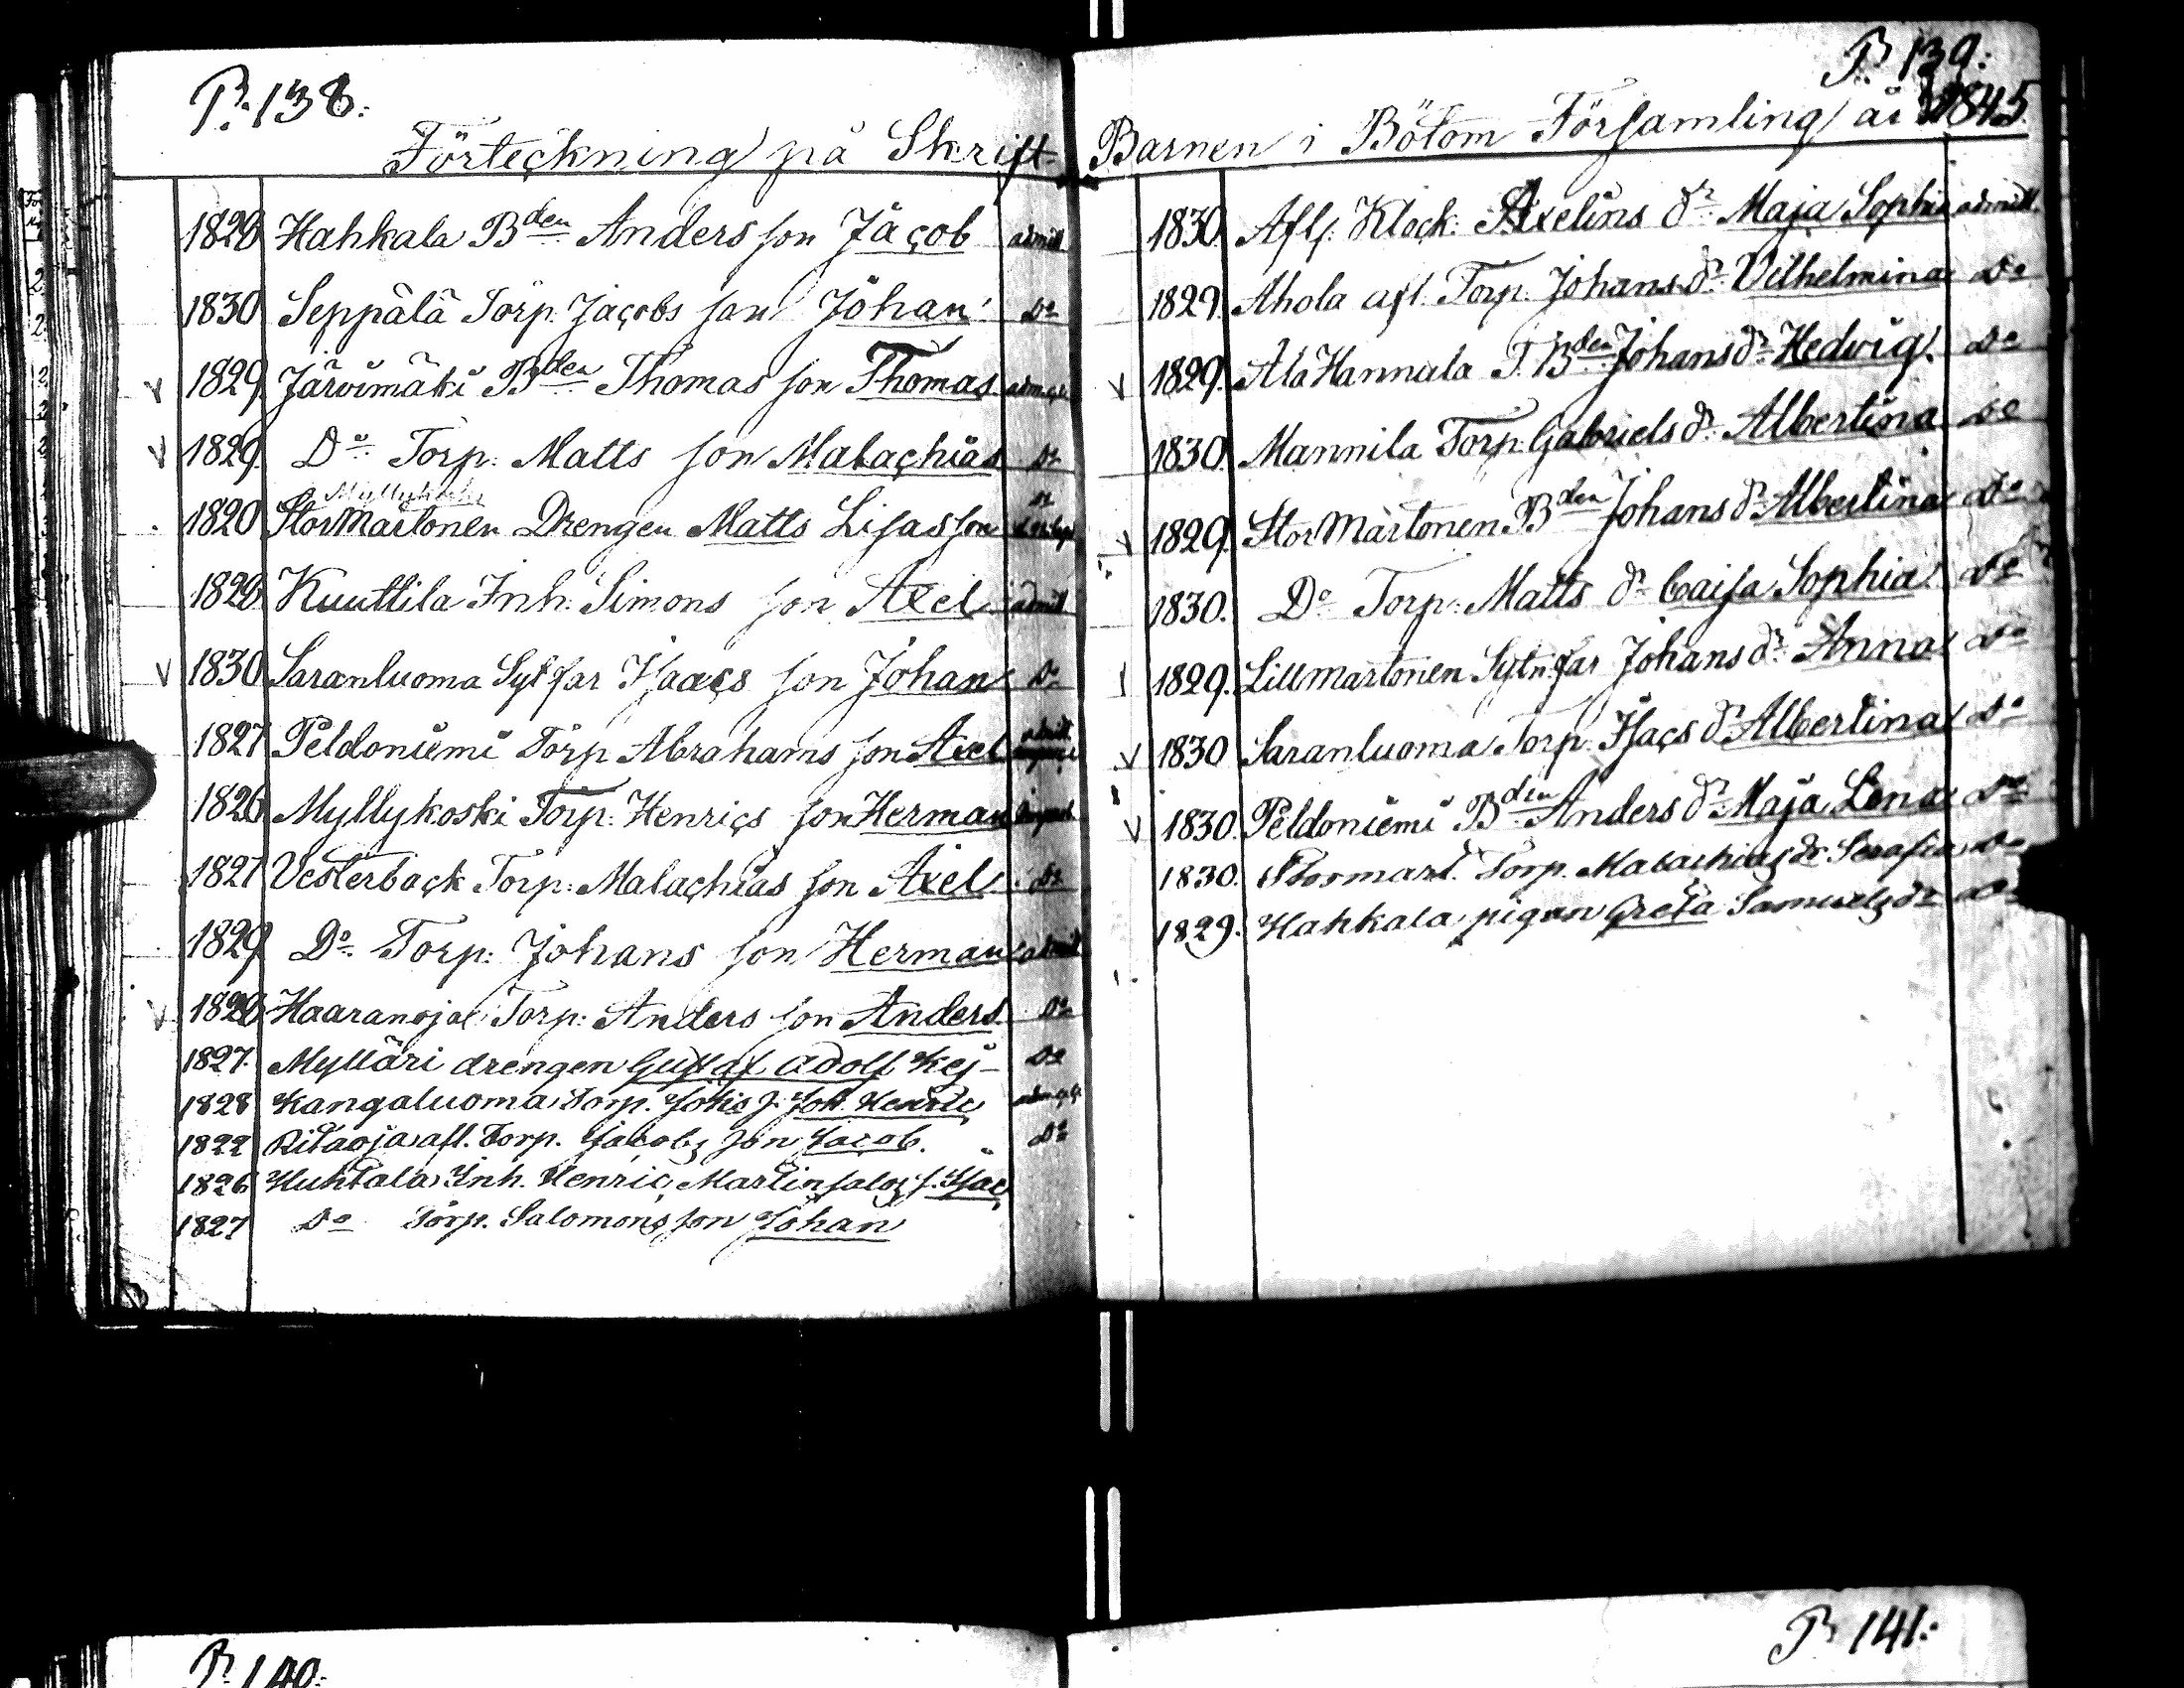 P. 138.
Förteckning på Skrift-
1829 Hahkala Bden Anders son Jacob admitt
1830 Seppälä Torp. Jacobs son Johan Do
1829 Järvimäki Bden Thomas son Thomas
1829 Do Torp. Matts son Malachias Do
Myllykoski Do
1820 Stor Martonen Drengen Matts Lisas son
1829 Kuuttila Inh. Simons son Axel admitt
1830 Saranluoma Sytfar Isaacs son Johan Do
1827 Peldoniemi Torp Abrahams son Axel admit.
1826 Myllykoski Torp. Henrics son Herman
1827 Vesterback Torp. Malachias son Axel Do
1829 Do Torp. Johans son Herman admit
Haaranoja Torp. Anders son Anders Do
1827. Mylläri drengen Gustaf Adolf Kej- Do
1828 Kangaluoma Torp. Johs s. Joh. Henric
1822 Ritaoja afl. Torp. Jacobs son Jacob. Do
1826 Huhtala Inh. Henric Martinsalos s. Isac
1827 Do Torp. Salomons son Johan
P. 139.
Barnen i Bötom Församling år 1845
1830. Afls. Klock. Axelins dr Maja Sophia admitt.
1829. Ahola afl. Torp. Johans dr Vilhelmina Do
1829. Ala Hannula T. Bden Johans dr Hedvig. Do
1830. Mannila Torp. Gabriels dr Albertina Do
1829. Stor Martonen Bden Johans dr Albertina Do
1830. Do Torp. Matts dr Caisa Sophia Do
1829. Lillmartonen Sytn.far Johans dr Anna Do
1830 Saranluoma Torp. Isacs dr Albertina Do
1830. Peldoniemi Bden Anders dr Maja Lena Do
1830. Stormart. Torp. Malachias dr Serafia Do
1829. Hahkala pigan Greta Samuels dr Do
P. 140.
P. 141.